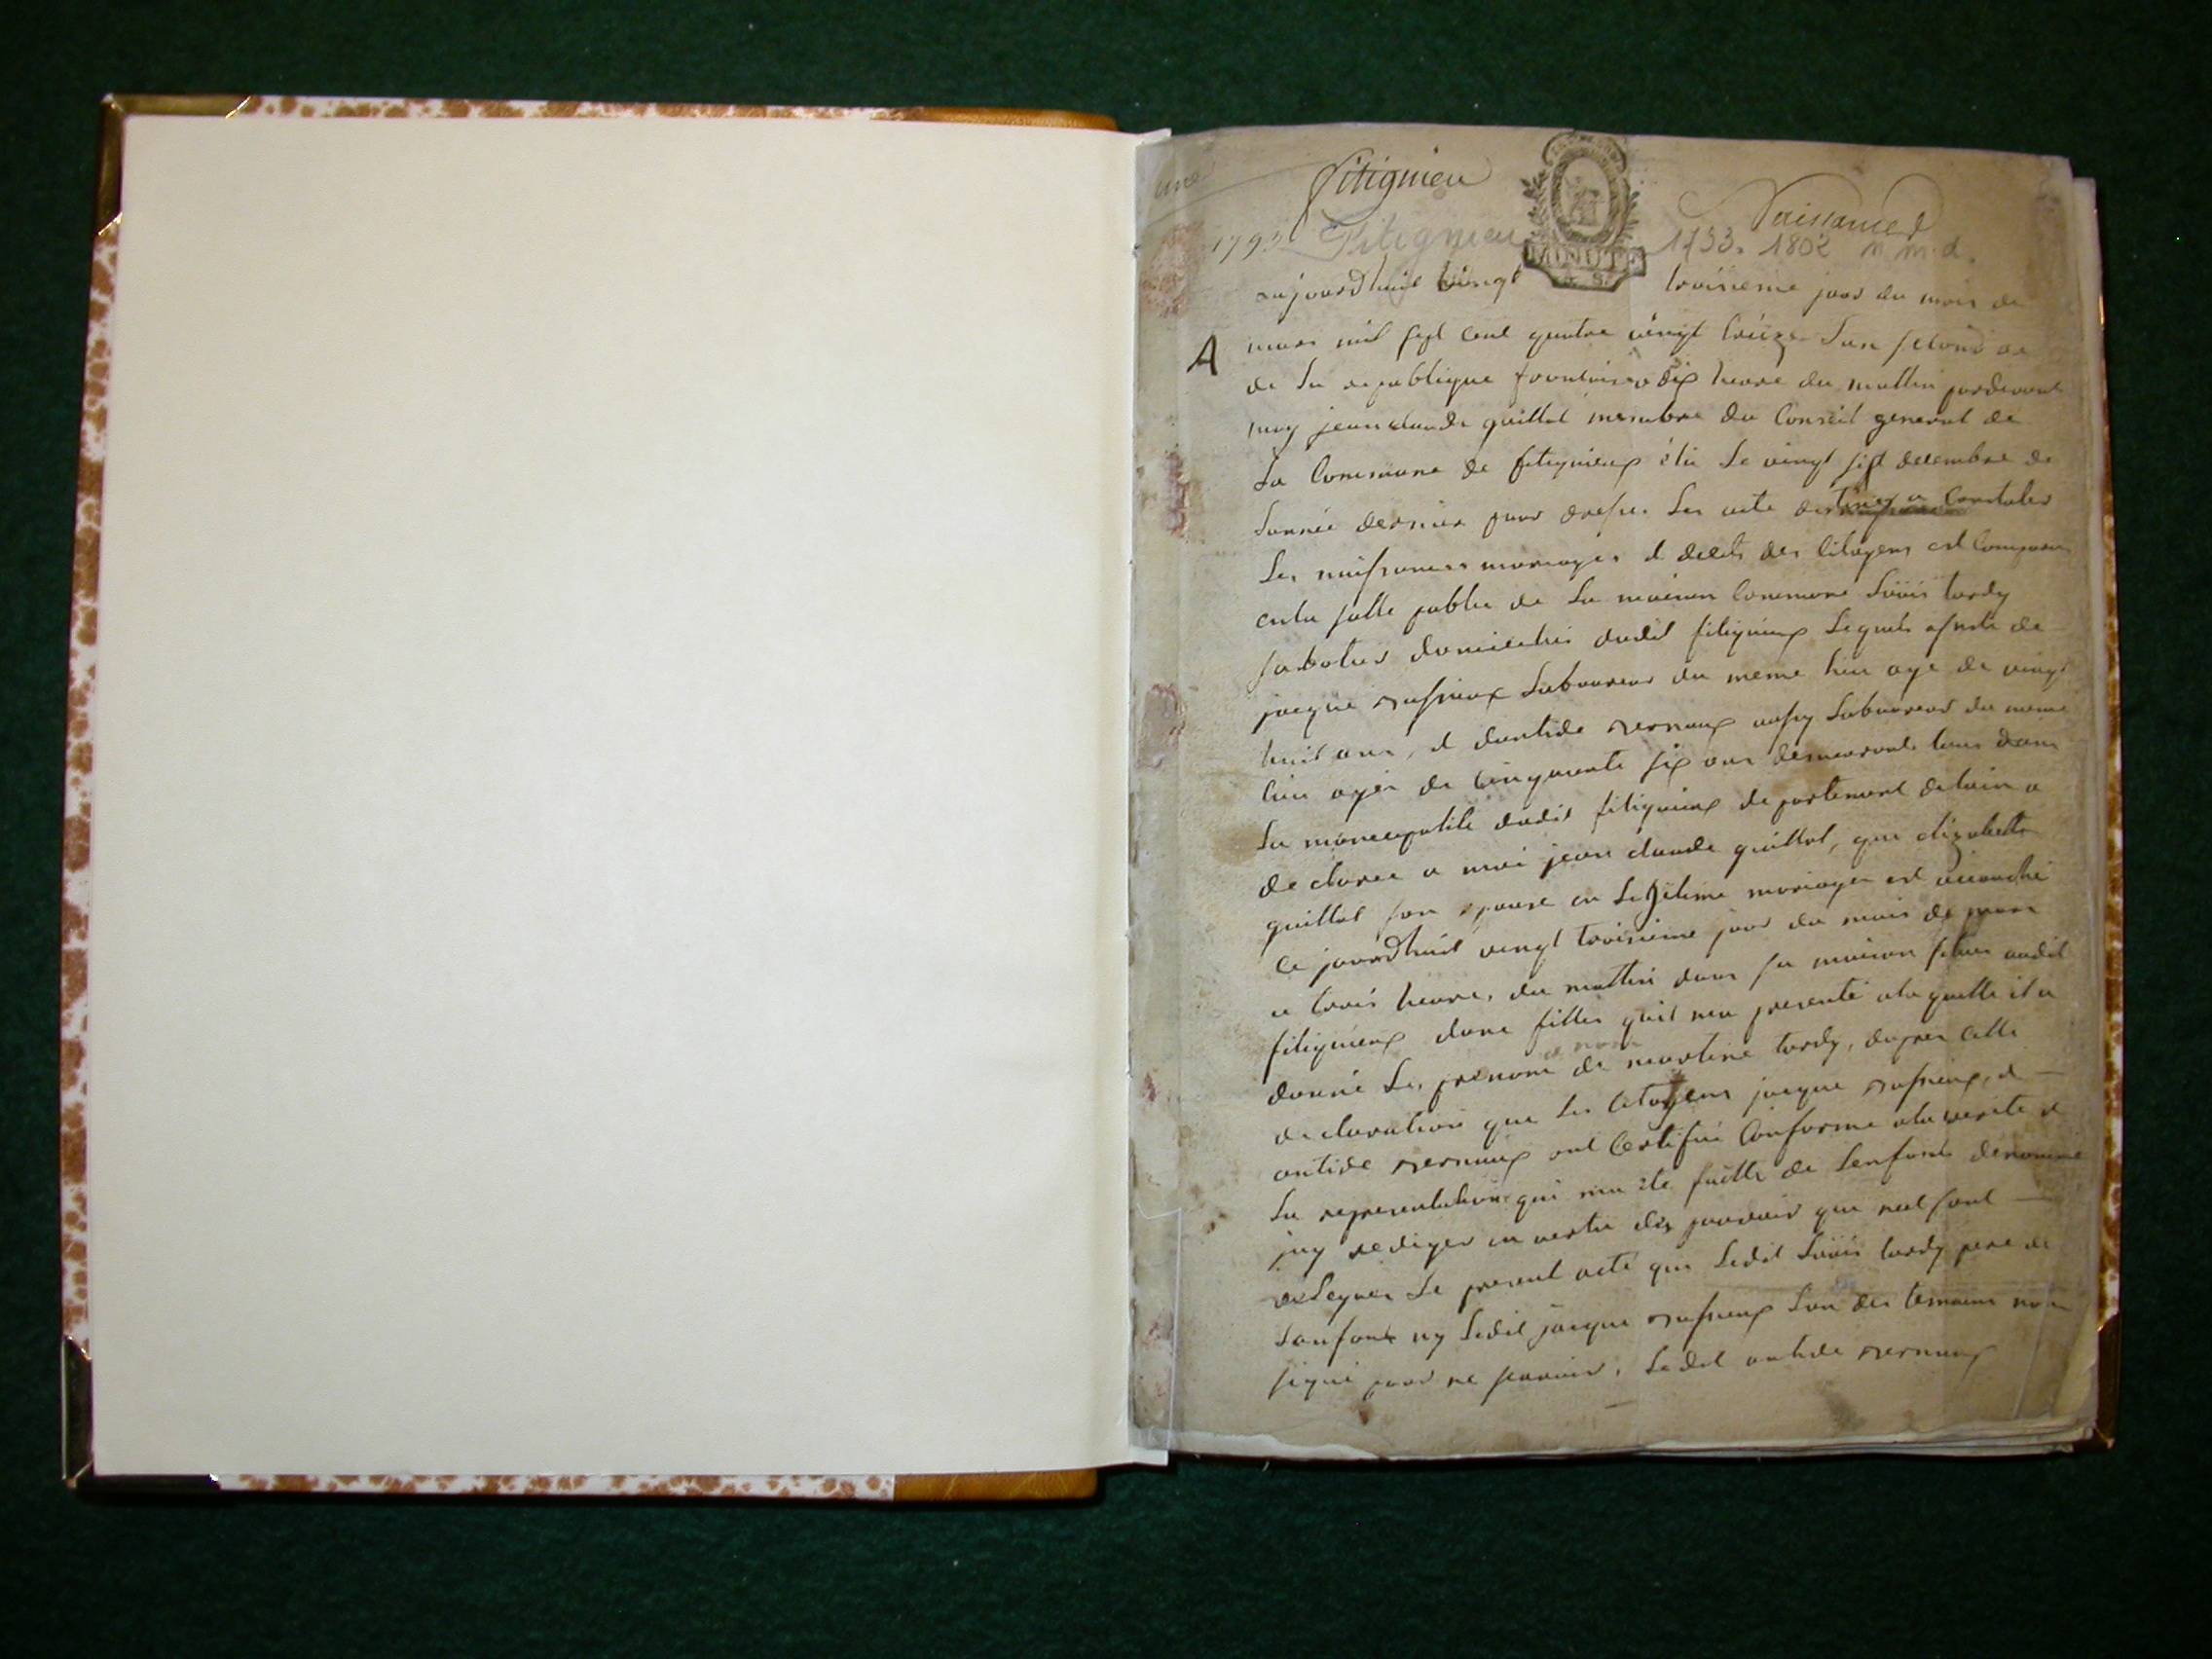 fitignieu
Naissances
1793 Fitignieu 1793. 1802 n. m. d.
MINUTE
aujourdhuit vingt troisieme jour du mois de
A
mars mil sept cent quatre vingt treize Lan second de
de La republique francaise a dix heure du mattin pardevant
moy jean claude guillot membre du Conseil general de
La Commune de fitignieux élu Le vingt sept decembre de
Lannée derniere pour dresser Les acte destiney a Constater
Les naissances mariages et decets des Citoyens est Comparu
en la salle public de La maison Commune Loüis tardy
sabotier domicilié dudit fitignieux Lequel assisté de
jacque Laboureur du meme lieu age de vingt
huit ans, et dantide aussy Laboureur du meme
lieu agés de Cinquante six ans demeurants tous dans
La municipalité dudit fitignieux departement de lain a
declaree a moi jean claude guillot, que elizabette
guillot son epouse en Legitime mariages est accouché
ce jourdhuit vingt troisieme jour du mois de mars
a trois heure, du mattin dans sa maison situé audit
fitignieux dune filles quil ma presenté a la quelle il a
donné Les prenom de martine tardy, dapres cette
declaration que Les Citoyens jacque et
antide ont Certifié Conforme a la verité et
La representation qui ma été faitte de Lenfant denommé
jay rediger en vertu des pouvoir qui me sont
delegues Le present acte que Ledit Loüis tardy pere de
Lanfant ny Ledit jacque Lun des temoins nont
signé pour ne scavoir. Ledit antide